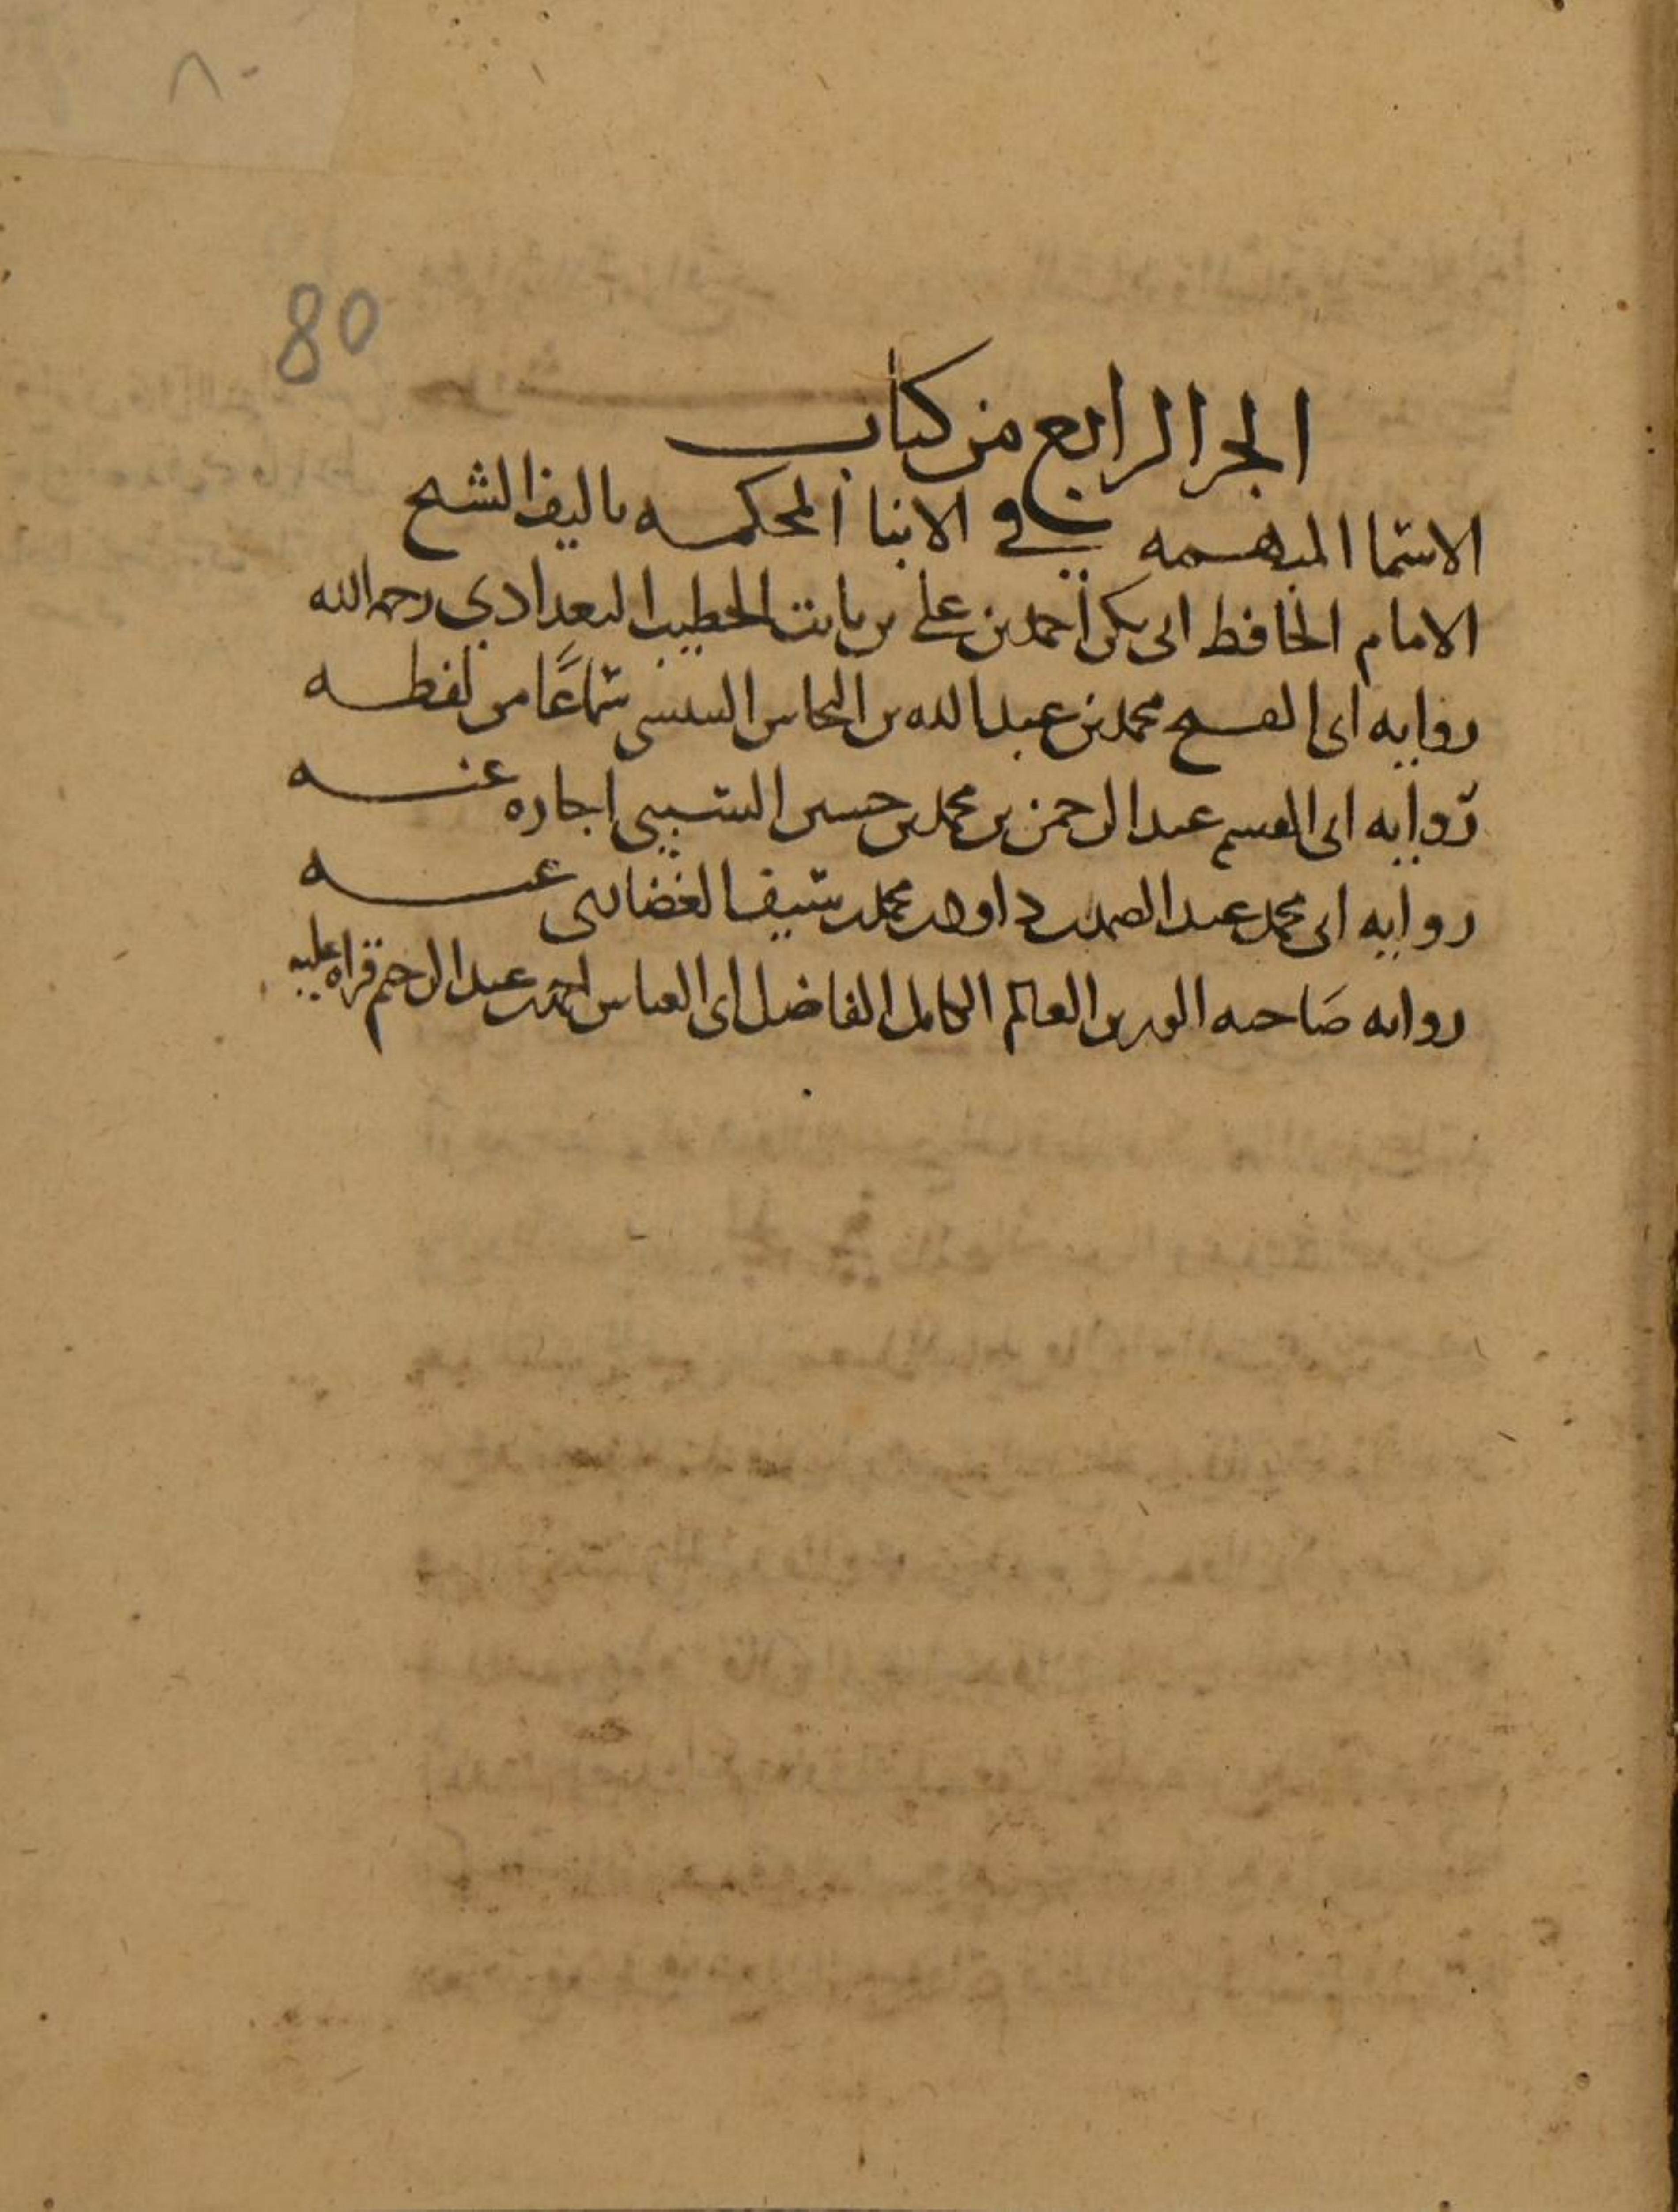 ٨٠
80
الجز الرابع من كتاب
الاسما المبهمه في الانبا المحكمه تاليف الشيخ
الامام الحافظ ابى بكر أحمد بن على بن ثابت الخطيب البغدادي رحمه الله
روايه ابى الفتح محمد بن عبد الله بن النحاس التنيسى سماعًا من لفظه
روايه ابى القسم عبد الرحمن بن محمد بن حسين السبيبى اجازه عنه
روايه ابى محمد عبد الصمد بن داود بن محمد بن سيف الغضائرى عنه
روايه صاحبه العالم الكامل الفاضل ابى العباس احمد بن عبد الرحيم قراه عليه